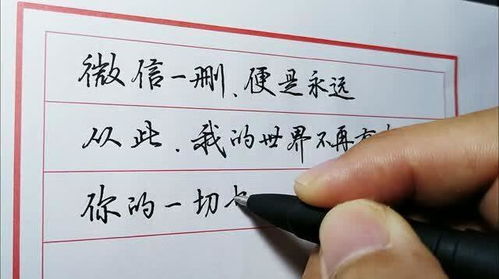 微信一删、便是永远
从此、我的世界不再有
你的一切